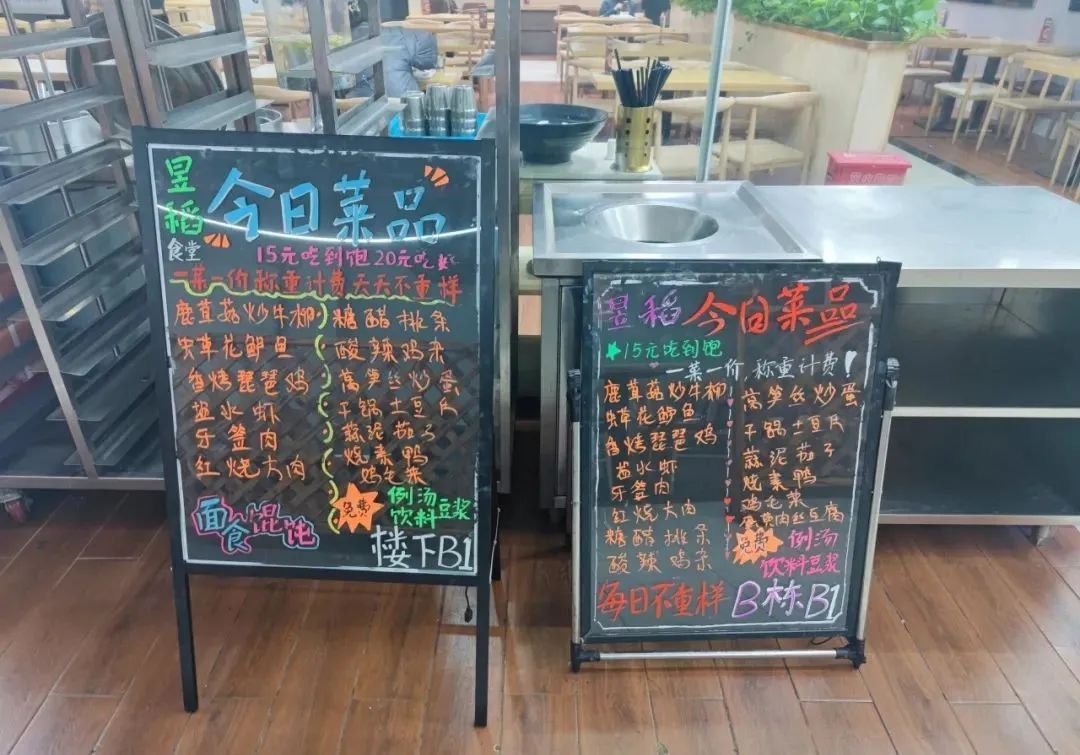 昱稻
食堂
今日菜品
15元吃到饱 20元吃
一菜一价 称重计费 天天不重样
鹿茸菇炒牛柳 糖醋排条
虫草花鲫鱼 酸辣鸡杂
香烤琵琶鸡 莴笋丝炒蛋
盐水虾 干锅土豆片
牙签肉 蒜泥茄子
红烧大肉 烧素鸭
鸡毛菜
面食 馄饨
免费
例汤
饮料豆浆
楼下B1
昱稻 今日菜品
15元吃到饱
一菜一价,称重计费!
鹿茸菇炒牛柳 莴笋丝炒蛋
虫草花鲫鱼 干锅土豆片
香烤琵琶鸡 蒜泥茄子
盐水虾 烧素鸭
牙签肉 鸡毛菜
红烧大肉 肉丝豆腐
糖醋排条
酸辣鸡杂
免费
例汤
饮料豆浆
每日不重样 B栋B1